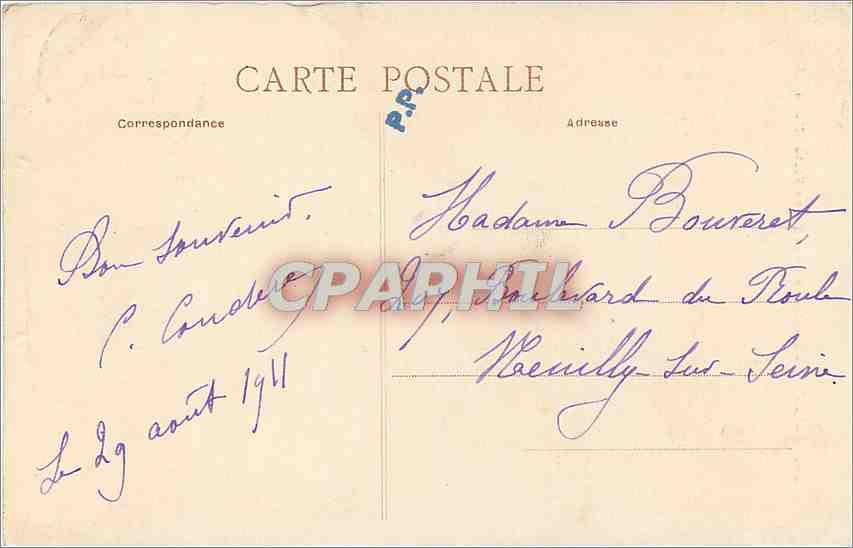 CARTE POSTALE
P.P.
Correspondance
Adresse
Bon souvenir.
C.
Le 29 août 1911
Madame Bouveret,
Boulevard du Roule
Neuilly-sur-Seine
CPAPHIL